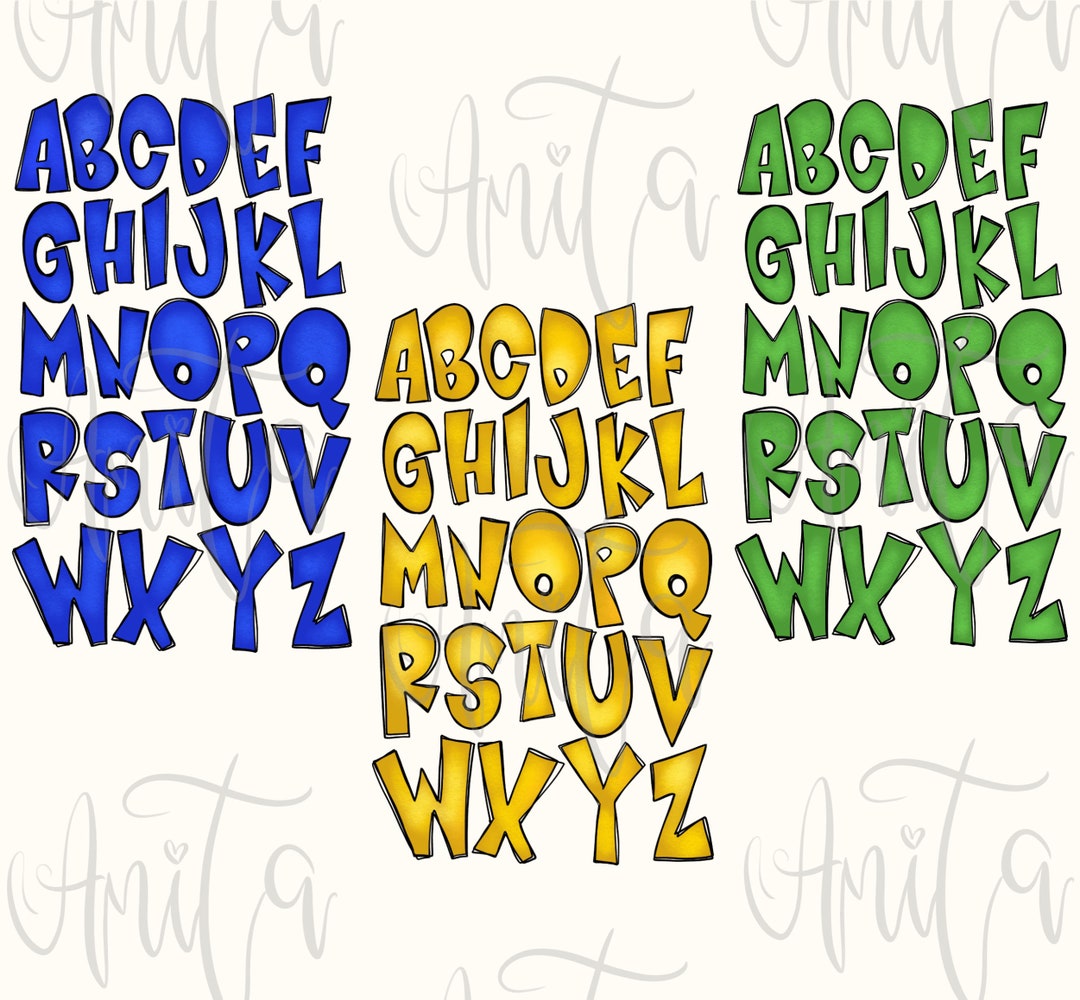 Anita
Anita
Anita
ABCDEF
GHIJKL
MNOPQ
RSTUV
WXYZ
ABCDEF
GHIJKL
MNOPQ
RSTUV
WXYZ
ABCDEF
GHIJKL
MNOPQ
RSTUV
WXYZ
Anita
Anita
Anita
Anita
Anita